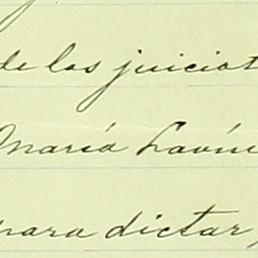 de los juicios
María Lavín
para dictar